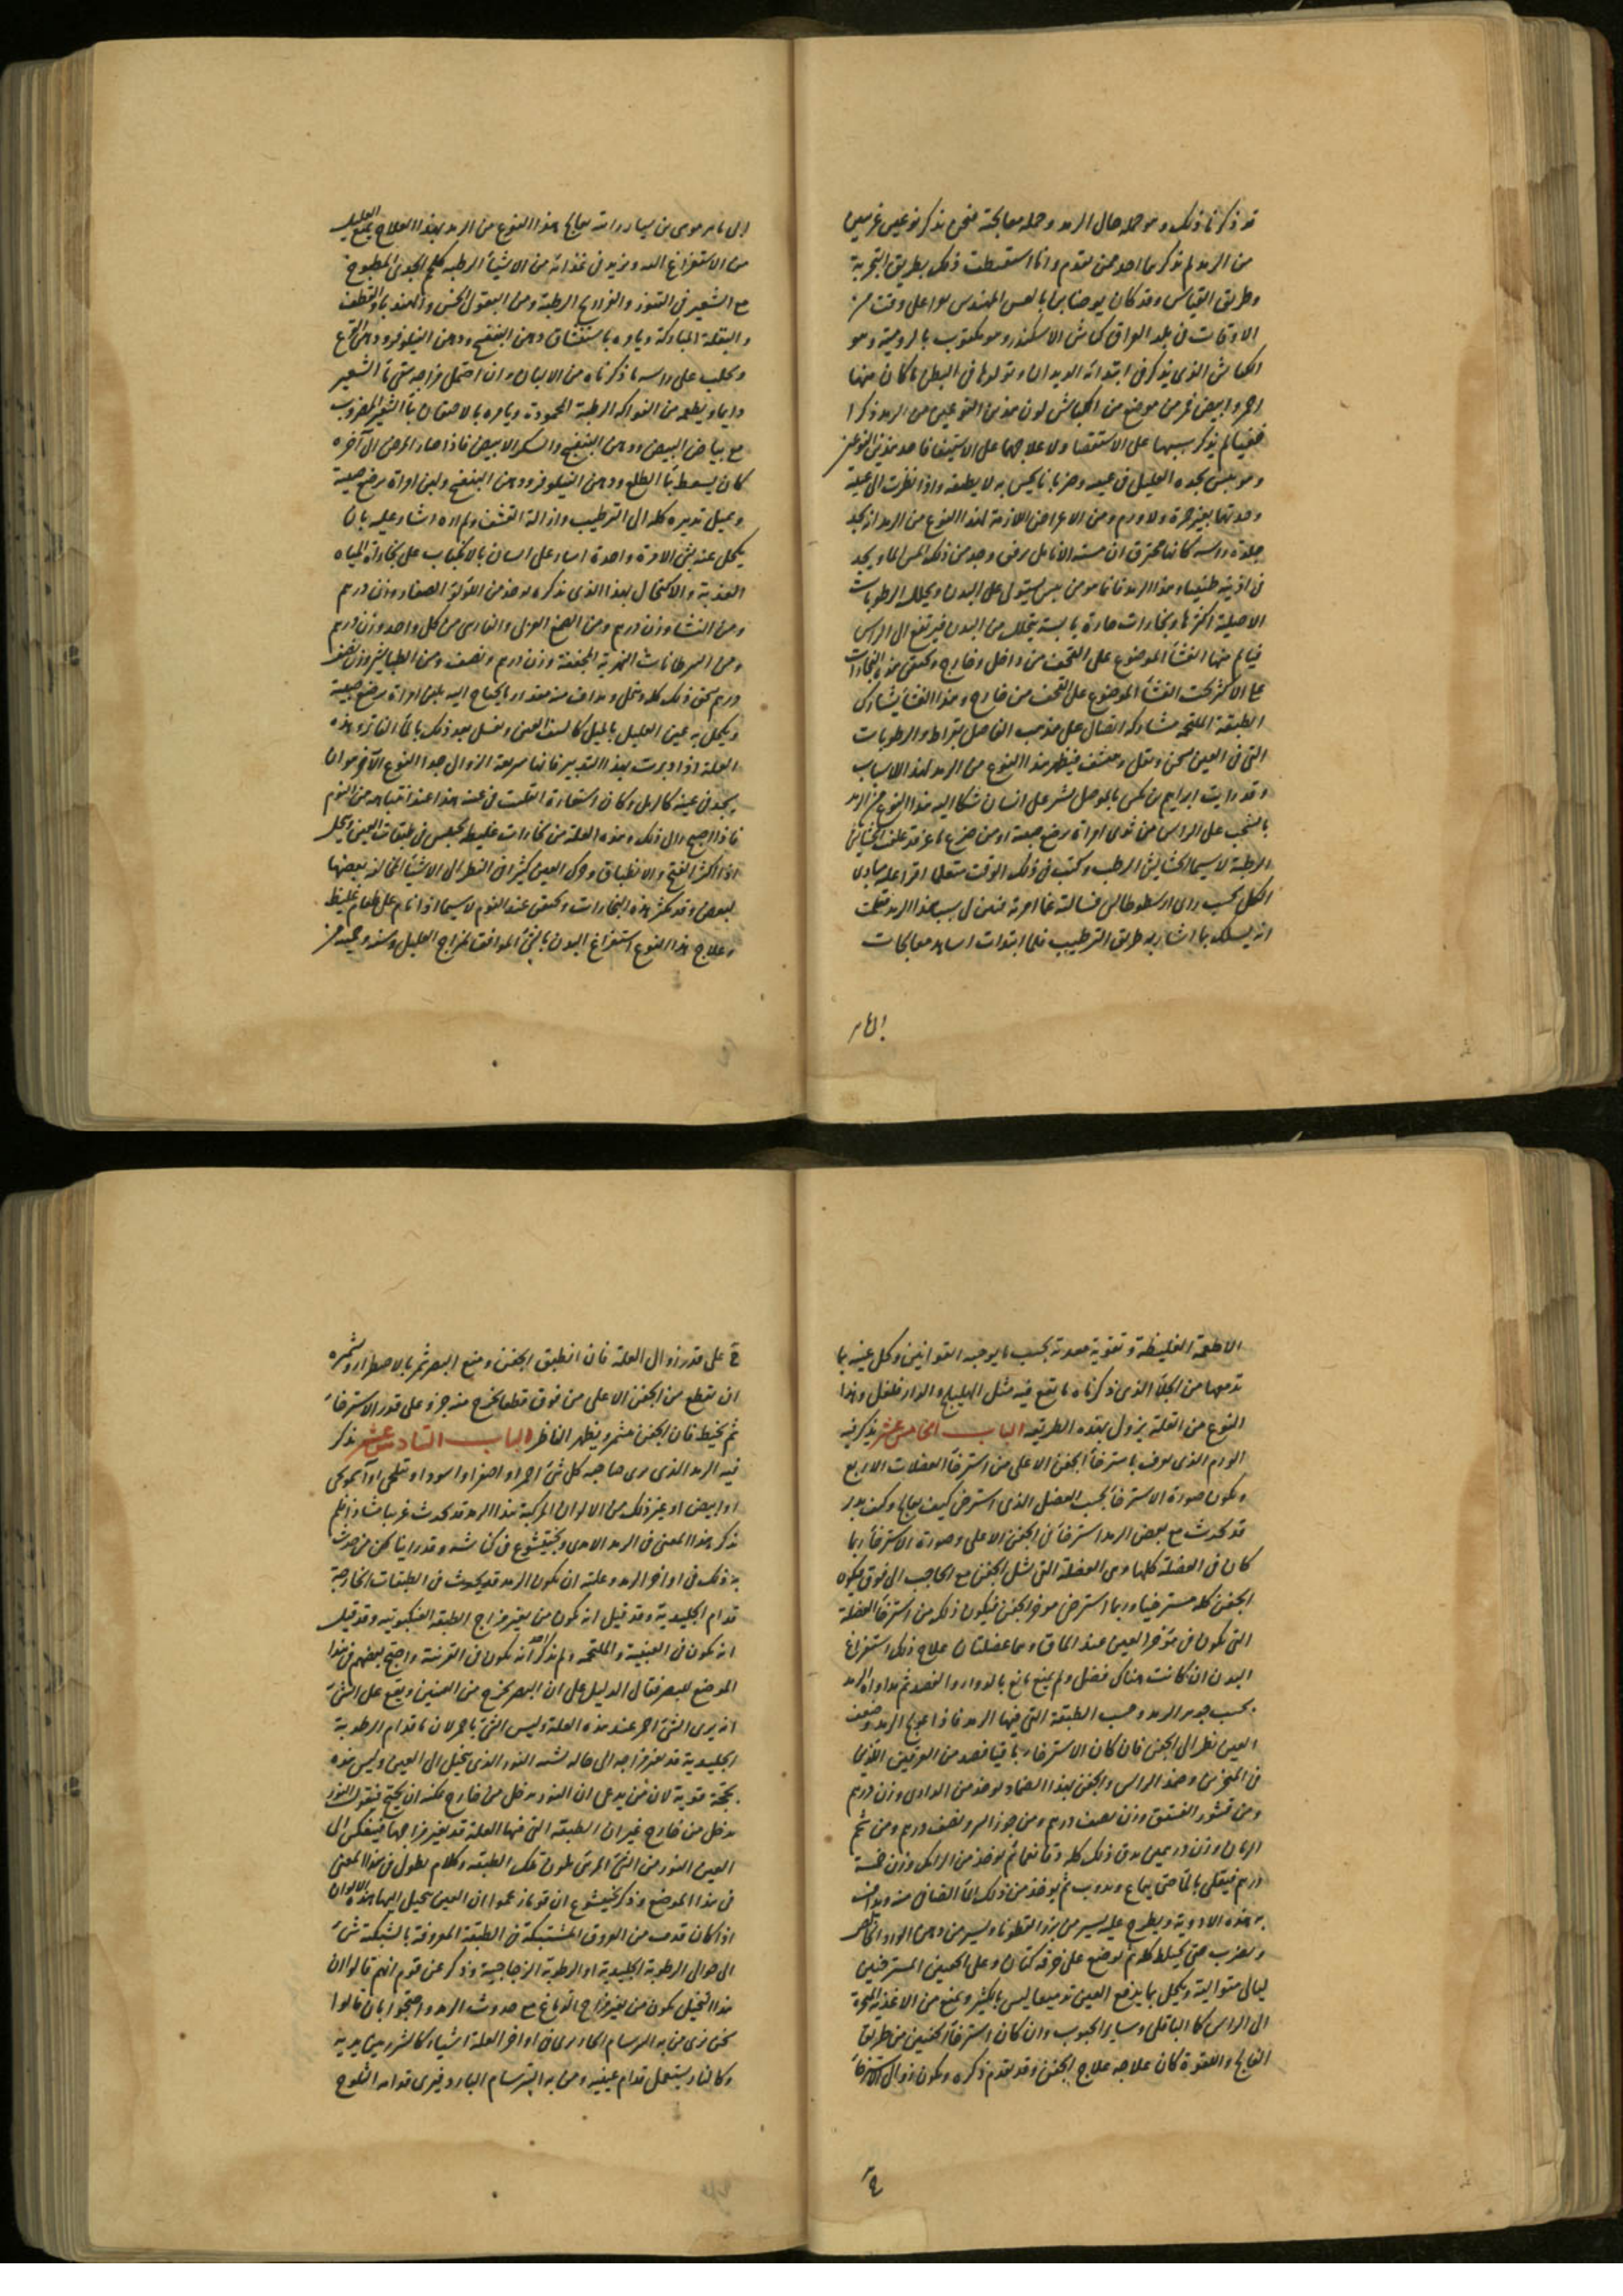 قد ذكرنا ذلك و هو جملة حال الرمد وجملة معالجته فنحن نذكر نوعين غريبين
من الرمد لم يذكرهما احد ممن تقدم وانا استنبطت ذلك بطريق التجربة
وطريق القياس وقد كان يوحنا على وقت من
الاوقات في بلد العراق كناش الاسكندر وهو مكتوب بالرومية وهو
الكناش الذي يذكر في ابتدائه الديدان وتولدها في البطن ما كان منها
احمر وابيض في موضع من الكناش لون هذين النوعين من الرمد ذكرا
خفيا لم يذكر سببهما على الاستقصاء ولا علاجهما على الاستيفاء فاحد هذين النوعين
وهو يبس يجده العليل في عينيه وضربانا يحس به لا يطيقه واذا نظرت الى عينيه
وجدتها بغير حمرة ولا ورم ومن الاعراض اللازمة لهذا النوع من الرمد ان يجد
جلدة رأسه كانها تحترق ان مسته الانامل برفق وجد من ذلك المس الما ويجد
في اذنيه طنينا وهذا الرمد فانما هو من يبس يستولي على البدن ويحلل الرطوبات
الاصلية اكثرها وبخارات حارة يابسة يتحلل من البدن فيرتفع الى الراس
فيألم منها الغشاء الموضوع على القحف من داخل وخارج ويحتقن هذه البخارات
على الاكثر تحت الغشاء الموضوع على القحف من خارج وهذا الغشاء يشارك
الطبقة الملتحمة مشاركة اتصال على مذهب الفاضل بقراط والرطوبات
التي في العين يسخن ويقل ويجفف فيظهر هذا النوع من الرمد لهذه الاسباب
وقد رايت ابراهيم بن بكس بالموصل يشير على انسان شكا اليه هذا النوع من الرمد
بالشخب على الراس من ثدي امراة يرضع صبية او من ضرع ماعز قد علف الحشايش
الرطبة لاسيما الحشايش الرطب وكنت في ذلك الوقت متعلما اقرأ عليه مبادي
الكحل بحسب راى ارسطوطاليس فسالته عما امر به فعرفني سبب هذا الرمد فقلت
انه يسلك بما اشار به طريق الترطيب فلما ابتدات اشاهد معالجات
ابي ماهر
ابي ماهر موسى بن سيار رايته يعالج هذا النوع من الرمد بهذا العلاج يمنع العليل
من الاستفراغ البتة ويزيد في غذائه من الاشياء الرطبة كلحم الجدي المطبوخ
مع الشعير في التنور والفراريج الرطبة ومن البقول الخس والهندباء والقطف
والبقلة المباركة ويامره باستنشاق دهن البنفسج ودهن النيلوفر ودهن القرع
ويحلب على راسه ما ذكرناه من الالبان وان احتمل مزاجه سقي ماء الشعير
دايما ويطعمه من الفواكه الرطبة المحمودة ويامره بالاحتقان بماء الشعير المضروب
مع بياض البيض ودهن البنفسج والسكر الابيض فاذا صار المرض الى آخره
كان يسعط بماء الطلع ودهن النيلوفر ودهن البنفسج ولبن امراة يرضع صبية
ويميل تدبيره كله الى الترطيب وازالة التقشف ولم اره اشار عليه بان
يكحل عينه بشئ الا مرة واحدة اشار على انسان بالانكباب على بخارات المياه
العذبة والاكتحال بهذا الذي نذكره يوخذ من اللؤلؤ الصغار وزن درهم
ومن النشا وزن درهم ومن الصمغ العربي والفارسي من كل واحد وزن درهم
ومن السرطانات النهرية المجففة وزن درهم ونصف ومن الطباشير وزن نصف
درهم يسحق ذلك كله وينخل ويداف منه مقدار ما يحتاج اليه بلبن امراة يرضع صبية
ويكحل به عين العليل بالميل ويغسل بعد ذلك بالماء الفاتر وهذه
العلة اذا دبرت بهذا التدبير فانها سريعة الزوال جدا النوع الآخر هو ان
يجد في عينه كالرمل وكان استعارة انقلبت في عينه هذا عند انتباهه من النوم
فاذا اصبح زال ذلك وهذه العلة من بخارات غليظة يحتبس في طبقات العين ويتحلل
اذا اكثر الفتح والانطباق وحرك العين كثيرا في النظر الى الاشياء المخالفة بعضها
لبعض وقد يكثر هذه البخارات ويحتقن عند النوم لاسيما اذا نام على طعام غليظ
وعلاج هذا النوع استفراغ البدن بالشئ الموافق لمزاج العليل وسنه وحميته من
الاطعمة الغليظة وتقوية معدته بحسب ما يوجبه القوانين وكحل عينيه بما
يدمعها من الجلاء الذي ذكرناه ما يقع فيه مثل الهليلج والدارفلفل وهذا
النوع من العلة يزول بهذه الطريقة الباب الخامس عشر يذكر فيه
الورم الذي يعرف باسترخاء الجفن الاعلى من استرخاء العضلات الاربع
ويكون صورة الاسترخاء بحسب العضل الذي استرخى كيف يعالج وكيف يدبر
قد يحدث مع بعض الرمد استرخاء في الجفن الاعلى وصورة الاسترخاء ربما
كان في العضلة كلها وهي العضلة التي تشيل الجفن مع الحاجب الى فوق فيكون
الجفن كله مسترخيا وربما استرخى موخر الجفن فيكون ذلك من استرخاء العضلة
التي تكون في مؤخر العين عند الماق وهما عضلتان علاج ذلك استفراغ
البدن ان كانت هناك فضل ولم يمنع مانع بالدواء والفصد ثم مداواة الرمد
بحسب جوهر الرمد وحسب الطبقة التي فيها الرمد فاذا عولج الرمد وضعف
العين نظر الى الجفن فان كان الاسترخاء باقيا فصد من العرقين اللذين
في المنخرين وضمد الراس والجفن بهذا الضماد يوخذ من الدادي وزن درهم
ومن قشور الفستق وزن نصف درهم ومن جوز السرو نصف درهم ومن شحم
الرمان وزن درهمين يدق ذلك كله دقا ناعما ثم يوخذ من الرامك وزن خمسة
دراهم فيغلى بالماء حتى ينماع ويذوب ثم يوخذ من ذلك الماء الصافي منه ويداف
به هذه الادوية ويطرح عليه يسير من بزر القطونا ويسير من دهن الورد الخالص
ويضرب حتى يختلط كله ثم يوضع على خرقة كتان وعلى الجفن المسترخيين
ليالي متوالية ويكحل بما يدمع العين تدميعا ليس بالكثير ويمنع من الاغذية المبخرة
الى الراس كالباقلى وساير الحبوب وان كان استرخاء الجفنين من طريق
الفالج واللقوة كان علاجه علاج الجفن وقد تقدم ذكره ويكون زوال الاسترخاء
على قدر زوال العلة فان انطبق الجفن ومنع البصر شمر بالاضطرار وتشميره
ان يقطع من الجفن الاعلى من فوق قطعا يخرج منه جزو على قدر الاسترخاء
ثم يخيط فان الجفن يتشمر ويظهر الناظر الباب السادس عشر يذكر
فيه الرمد الذي يرى صاحبه كل شئ احمر او اصفر او اسود او نيلجي او آسمانجوني
او ابيض او غير ذلك من الالوان المركبة هذا الرمد قد يحدث غريبا شاذا ولم
يذكر هذا المعنى في الرمد الا مرى وبختيشوع في كناشه وقد راينا نحن من حدث
به ذلك في اواخر الرمد وعلته ان يكون الرمد قد يحدث في الطبقات الخارجة
قدام الجليدية وقد قيل انه يكون من تغير مزاج الطبقة العنكبوتية وقد قيل
انه يكون في العنبية والملتحمة ولم يذكر احد انه يكون في القرنية واحتج بعضهم في هذا
الموضع للبصر فقال الدليل على ان البصر يخرج من العينين ويقع على الشئ
انه يرى الشئ احمر عند هذه العلة وليس الشئ باحمر لان ما قدام الرطوبة
الجليدية قد تغير مزاجه الى حالة تشبه النور الذي يتخيل الى العين وليس هذه
بحجة قوية لان من يدعي ان النور يدخل من خارج يمكنه ان يحتج فيقول النور
يدخل من خارج غير ان الطبقة التي فيها العلة قد تغير مزاجها فينعكس الى
العين النور من الشئ المرئي بلون تلك الطبقة والكلام يطول في هذا المعنى
في هذا الموضع وذكر بختيشوع ان قوما زعموا ان العين يتخيل اليها هذه الالوان
اذا كان قد صب من العروق المشتبكة في الطبقة المعروفة بالشبكية شئ
الى حوالي الرطوبة الجليدية او الرطوبة الزجاجية وذكر عن قوم انهم قالوا ان
هذا التخيل يكون من تغير مزاج الدماغ مع حدوث الرمد واحتجوا بان قالوا
نحن نرى من به البرسام الحار يرى في اواخر العلة اشياء كالشرر بين يديه
وكالنار يشتعل قدام عينيه ومن به البرسام البارد فيرى قدامه الثلوج